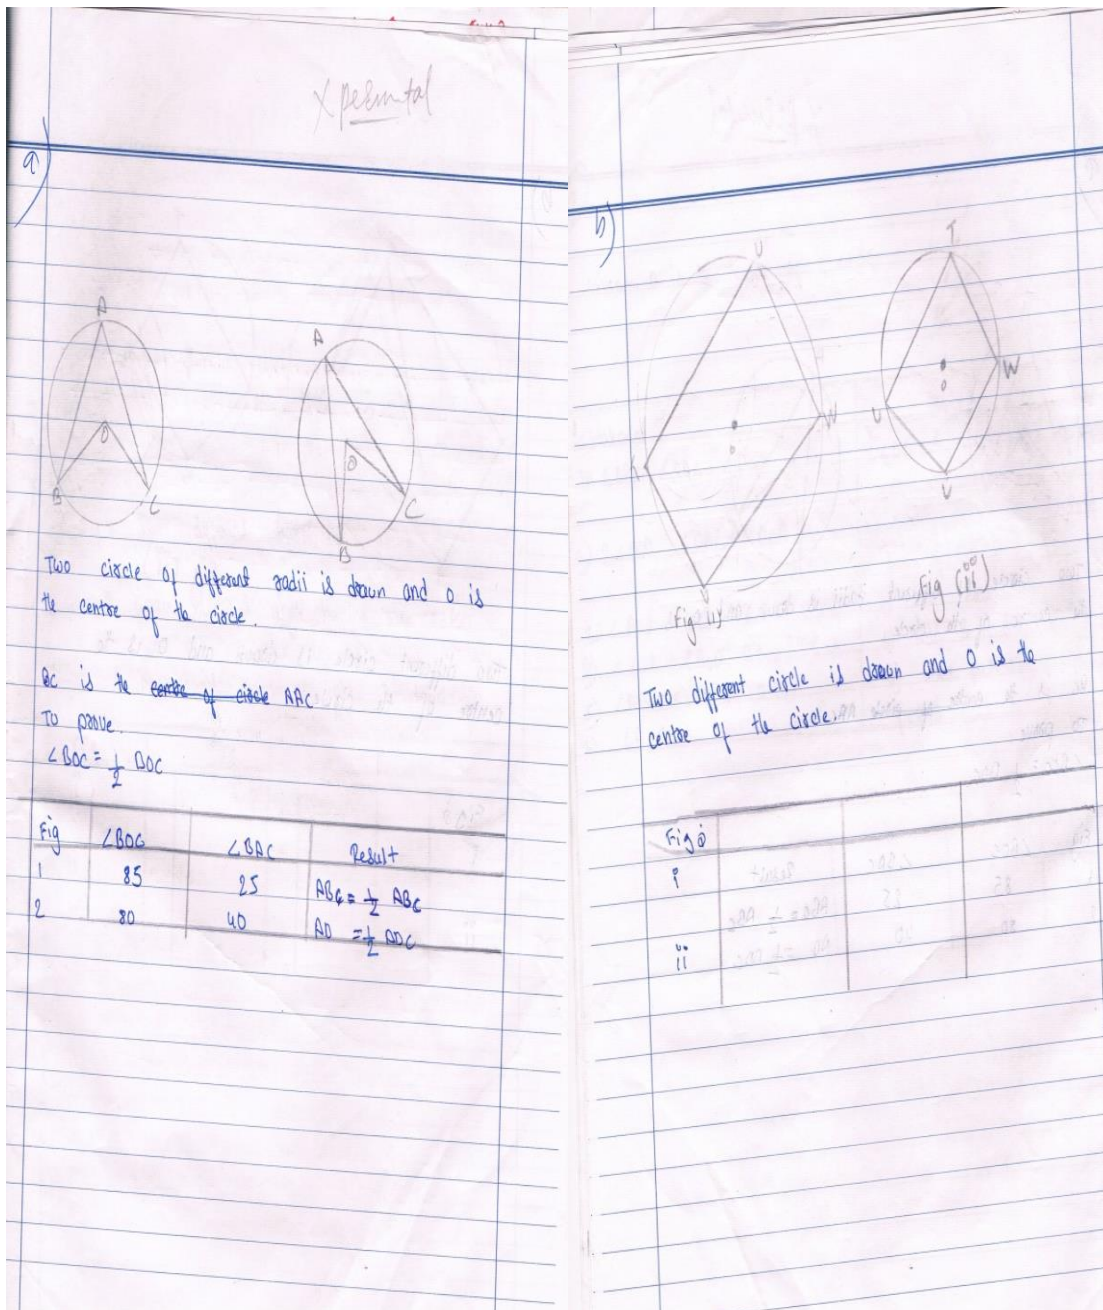 Xperimental
a)
A
O
B
C
A
O
B
C
Two circle of different radii is drawn and O is
the centre of the circle.
BC is the centre of circle AAC
To prove.
∠BOC = 1/2 BOC
Fig ∠BOC ∠BAC Result
1 85 25 ABC = 1/2 ABC
2 80 40 AD = 1/2 ADC
b)
U
W
Fig (i)
T
W
O
U
V
Fig (ii)
Two different circle is drawn and O is the
centre of the circle.
Fig
i
ii